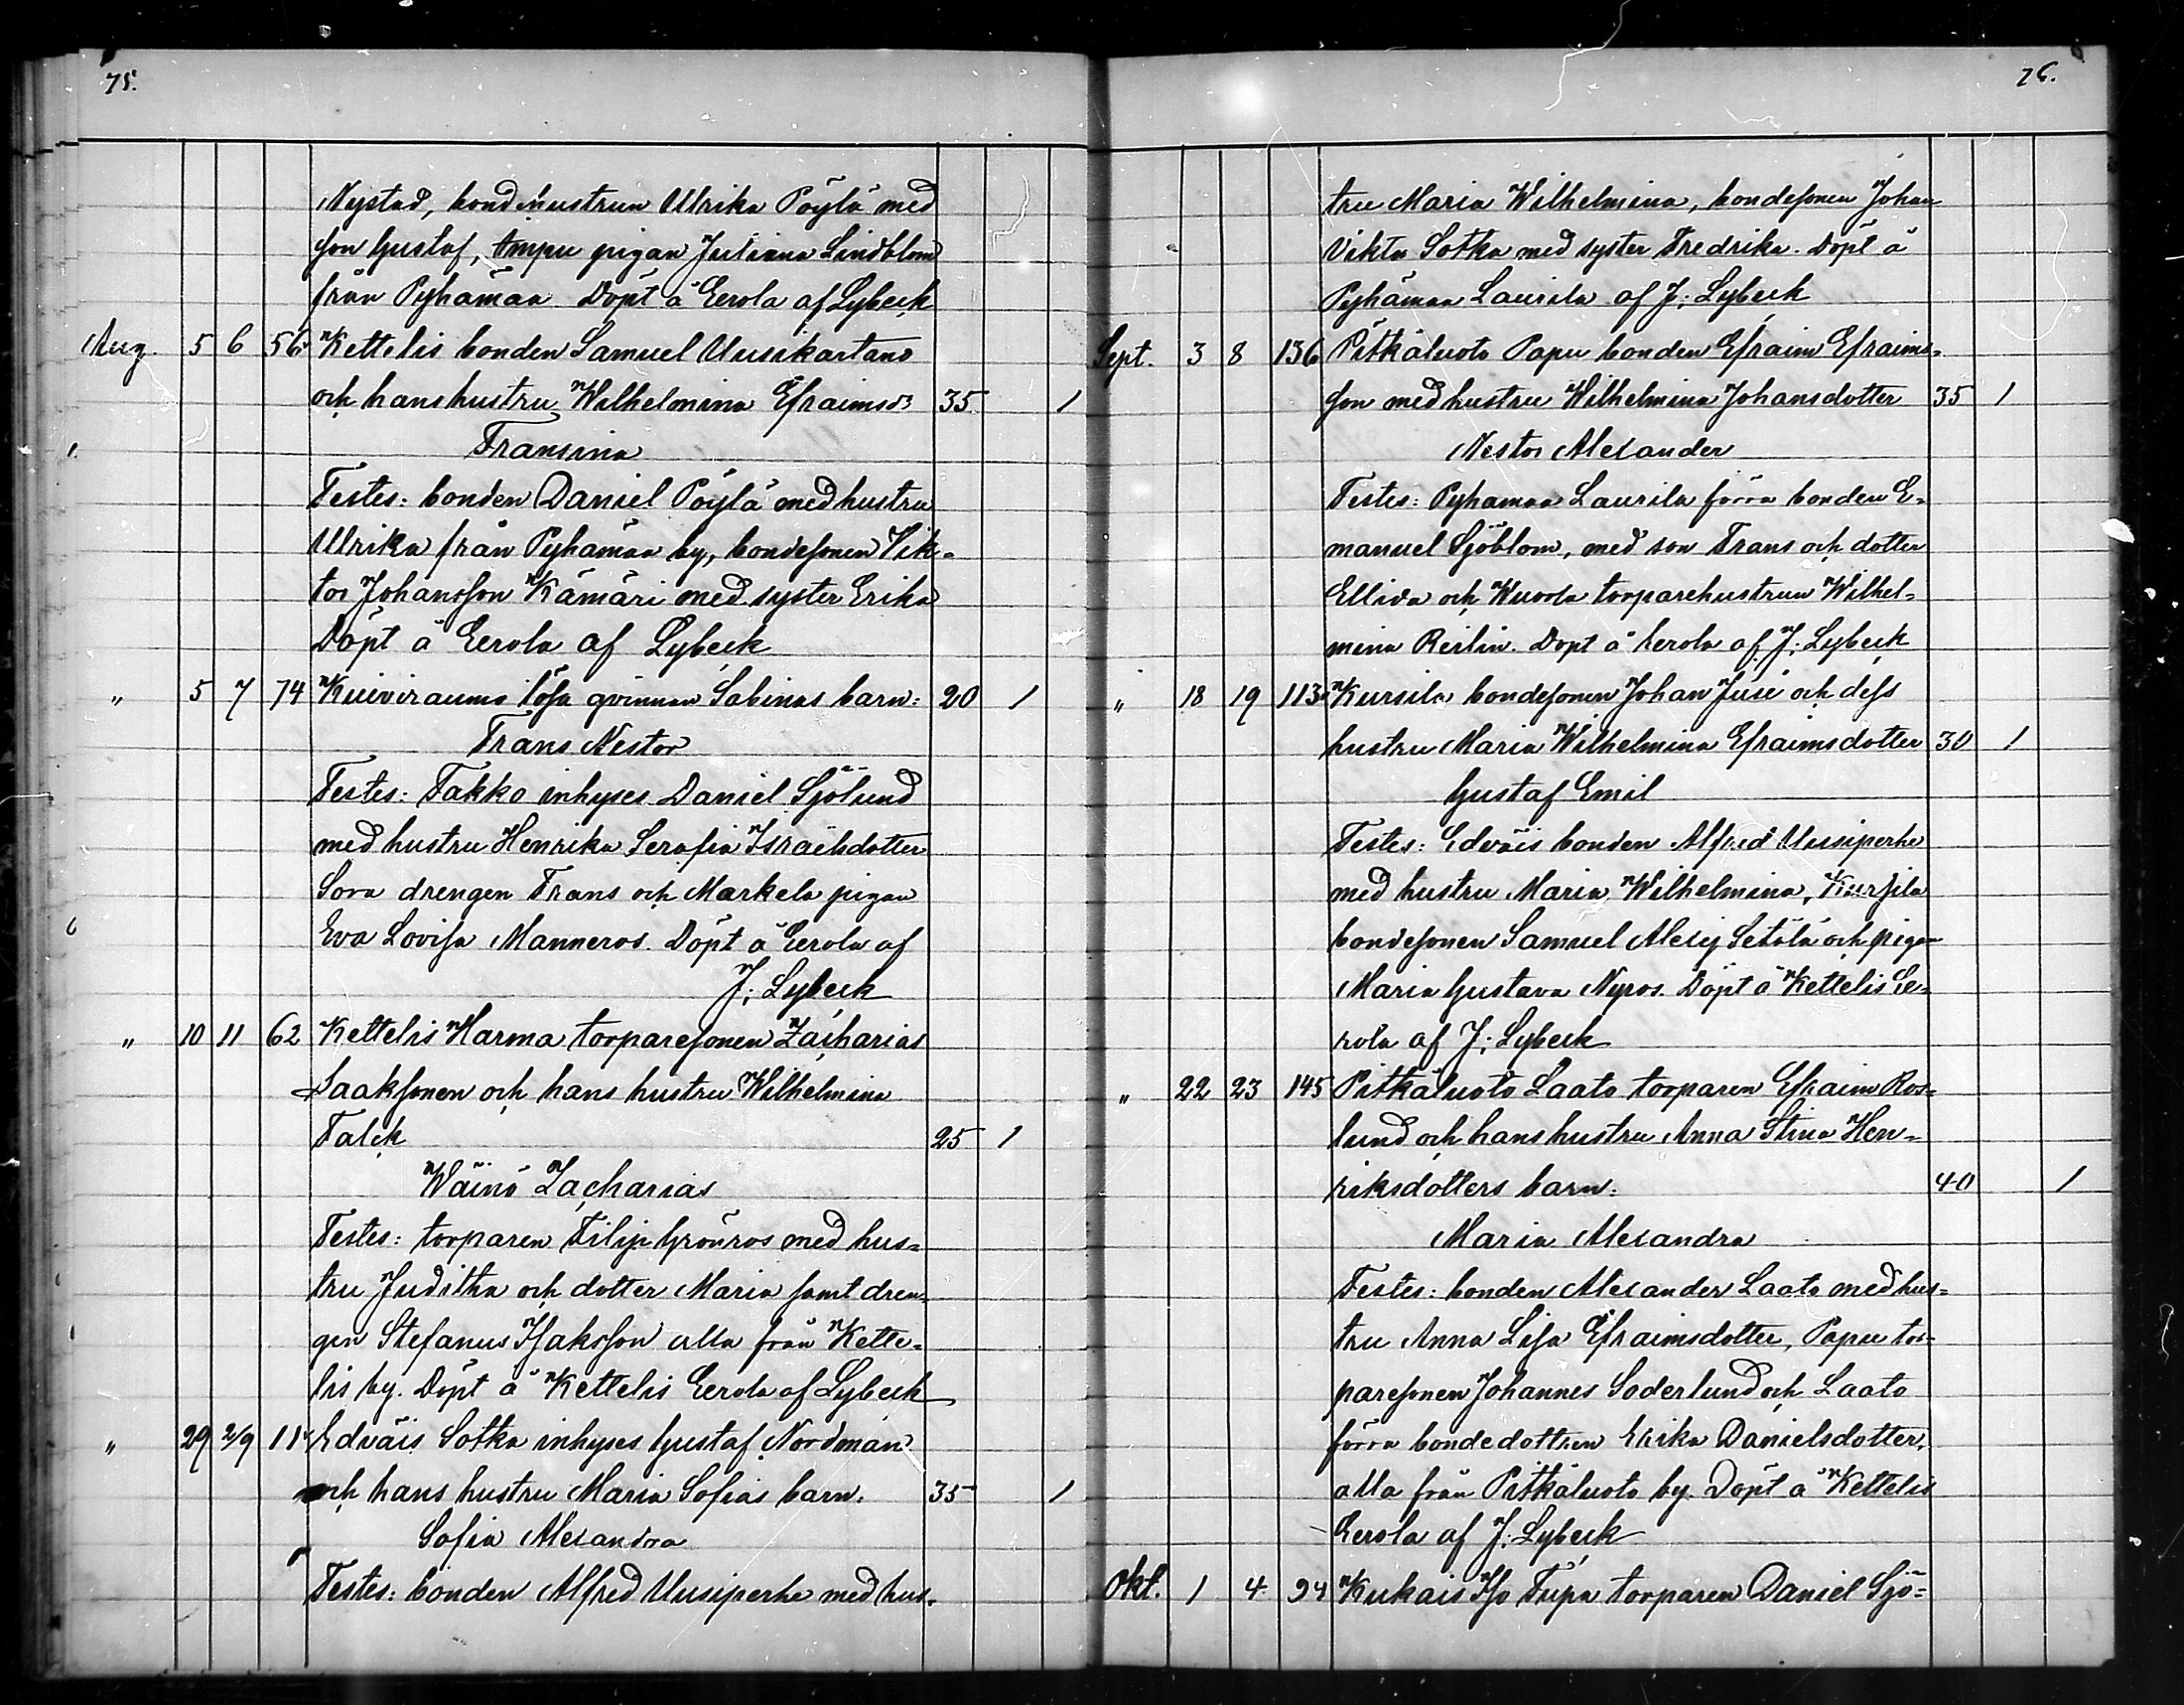 75.
Nystad, bondhustrun Ulrika Pöylä med
son Gustaf, Ampu pigan Juliana Lindblom
från Pyhämaa Döpt å Eerola af Lybeck
Aug. 5 6 56 Kettelis bonden Samuel Uusikartano
och hans hustru Wilhelmina Efraimsdr 35 1
Fransina
Testes: bonden Daniel Pöylä med hustru
Ulrika från Pyhämaa by, bondesonen Vik-
tor Johansson Kämäri med syster Erika
Döpt å Eerola af Lybeck
" 5 7 74 Kuiviraumo lösa qvinnan Sabinas barn: 20 1
Frans Nestor
Testes: Takko inhyses Daniel Sjölund
med hustru Henrika Serafia Israelsdotter
Sora drengen Frans och Markela pigan
Eva Lovisa Manneros. Döpt å Eerola af
J; Lybeck
" 10 11 62 Kettelis Harma torparesonen Zacharias
Isaaksonen och hans hustru Wilhelmina
Falck 25 1
Wäinö Zacharias
Testes: torparen Filip Grönros med hus-
tru Juditha och dotter Maria samt dren-
gen Stefanus Isaksson alla från Kette-
lis by. Döpt å Kettelis Eerola af Lybeck
" 29 2/9 11 Edväis Sotka inhyses Gustaf Nordman
och hans hustru Maria Sofias barn: 35 1
Sofia Alexandra
Testes: bonden Alfred Uusiperhe med hus-
76.
tru Maria Wilhelmina, bondesonen Johan
Viktor Sotka med syster Fredrika. Döpt å
Pyhämaa Laurila af J; Lybeck
Sept. 3 8 136 Pitkäluoto Papu bonden Efraim Efraims-
son med hustru Wilhelmina Johansdotter 35 1
Nestor Alexander
Testes: Pyhämaa Laurila förra bonden E-
manuel Sjöblom, med son Frans och dotter
Ellida och Kuvola torparehustrun Wilhel-
mina Reilin. Döpt å Eerola af J; Lybeck
" 18 19 113 Kursila bondesonen Johan Jusi och dess
hustru Maria Wilhelmina Efraimsdotter 30 1
Gustaf Emil
Testes: Edväis bonden Alfred Uusiperhe
med hustru Maria Wilhelmina, Kursila
bondesonen Samuel Alexij Setälä och pigan
Maria Gustava Nyros. Döpt å Kettelis Ee-
rola af J; Lybeck
" 22 23 145 Pitkäluoto Laato torparen Efraim Ros-
lund och hans hustru Anna Stina Hen-
riksdotters barn: 40 1
Maria Alexandra
Testes: bonden Alexander Laato med hus-
tru Anna Lisa Efraimsdotter, Papu tor-
paresonen Johannes Söderlund och Laato
förra bondedottren Erika Danielsdotter,
alla från Pitkäluoto by. Döpt å Kettelis
Eerola af J; Lybeck
Okt. 1 4 94 Kukais Iso Tupa torparen Daniel Sjö-